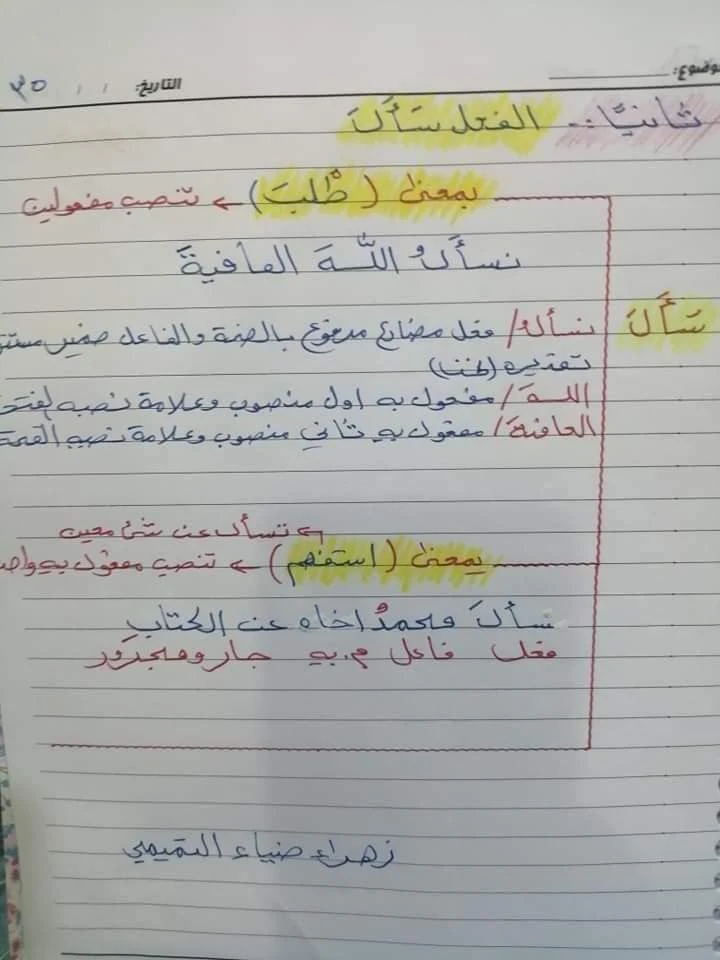 موضوع:
التاريخ: / / ٣٥
ثانيًا.. الفعل سَأَلَ
بمعنى (طَلَبَ) ← تنصب مفعولين
نسأَلُ اللَّهَ العافيةَ
سَأَلَ
نسألُ/ فعل مضارع مرفوع بالضمة والفاعل ضمير مستتر
تقديره (نحن)
اللهَ/ مفعول به اول منصوب وعلامة نصبه الفتحة
العافيةَ/ مفعول به ثاني منصوب وعلامة نصبه الفتحة
← تسأل عن شيء معين
بمعنى (استفهم) ← تنصب مفعول به واحد
سألَ محمدُ اخاه عن الكتابِ
فعل فاعل م.به جار ومجرور
زهراء ضياء التميمي